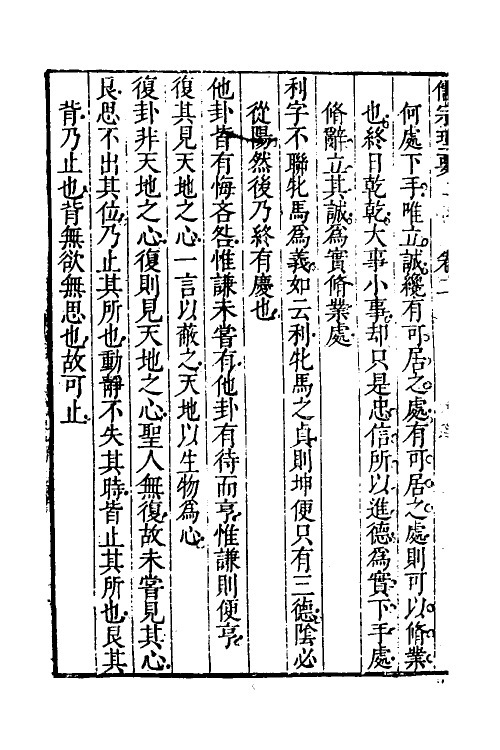 儒宗理要 卷二
何處下手唯立誠纔有可居之處有可居之處則可以脩業
也終日乾乾大事小事却只是忠信所以進德爲實下手處
脩辭立其誠爲實脩業處
利字不聯牝馬爲義如云利牝馬之貞則坤便只有三德陰必
從陽然後乃終有慶也
他卦皆有悔吝咎惟謙未嘗有他卦有待而亨惟謙則便亨
復其見天地之心一言以蔽之天地以生物爲心
復卦非天地之心復則見天地之心聖人無復故未嘗見其心
艮思不出其位乃止其所也動靜不失其時皆止其所也艮其
背乃止也背無欲無思也故可止